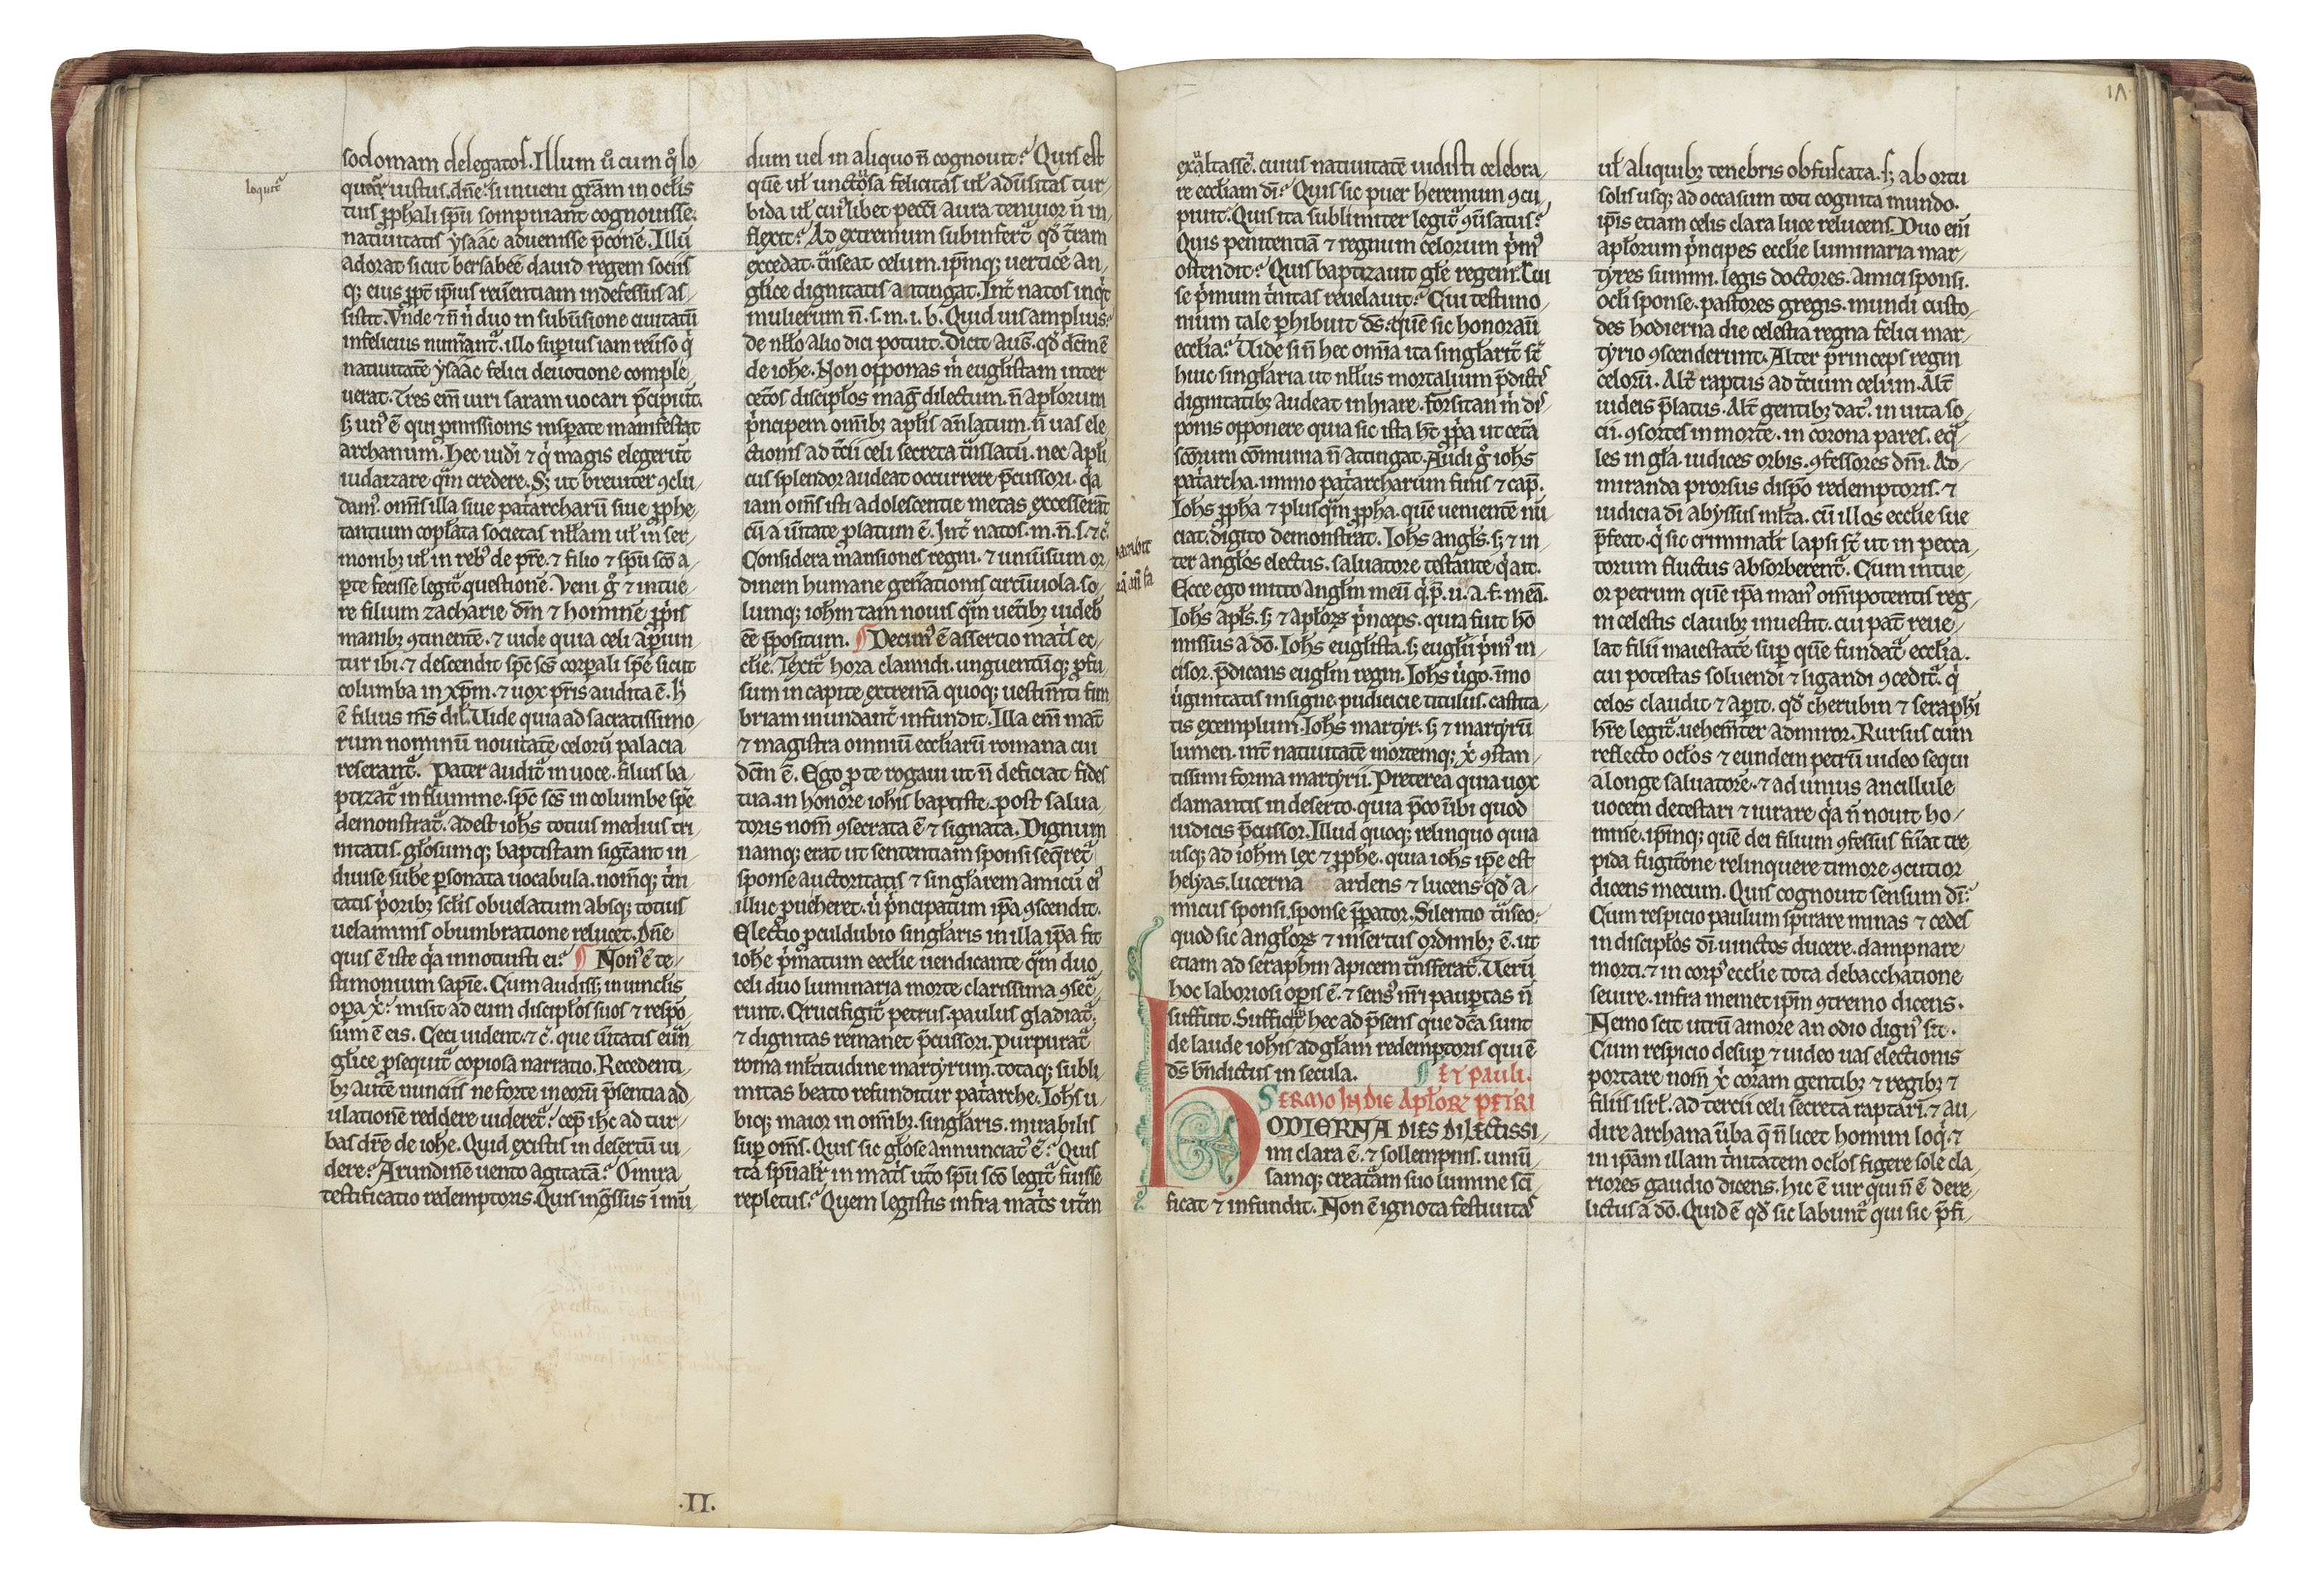 sodomam delegatos. Illum u̾o cum q̊ lo-
quit᷑ iustus. dn̄e. si inueni gr̄am in oclīs
loquit᷑
tuis ꝓphali sp̄u sompniant cognouisse.
natiuitatis ysaac aduenisse p̄conē. Illū
adorat sicut bersabeē dauid regem sociis
q; eius ꝓpt̄ ip̄ius reu̾entiam indefessus as-
sistit. Vnde ⁊ n̄ n̄ duo in subu̾sione ciuitatū
infelicius num̄ant᷑. illo suꝑius iam reu̾so q̇
natiuitatē ysaac felici deuotione comple-
uerat. Tres em̄ uiri saram uocari p̄cipiūt.
sꝫ un᷒ ē qui ꝓmissionis insꝑate manifestat
archanum. Hec uidi ⁊ q̇ magis elegerūt
iudaizare q̄m credere. Sꝫ ut breuiter ꝯclu-
dam᷒. om̄s illa siue pat̾archarū siue ꝓphe-
tantium coplāta societas nłłam uł in ser-
monibꝫ uł in reb᷒ de pr̄e. ⁊ filio ⁊ sp̄u sc̄o a-
ꝑte fecisse legit᷑ questionē. Veni g̊ ⁊ intue-
re filium zacharie dm̄ ⁊ hominē ꝓp̄is
manibꝫ ꝯtinentē. ⁊ uide quia celi aꝑiun-
tur ibi. ⁊ descendit sp̄c sc̄s corꝑali sp̄e sicut
columba in xp̄m. ⁊ uox pr̄is audita ē. h̾
ē filius m̄s dił. Uide quia ad sacratissimo-
rum nominū nouitatē celorū palacia
reserant᷑. Pater audit᷑ in uoce. filius ba-
ptizat᷑ in flumine. sp̄c sc̄s in columbe sp̄e
demonstrat᷑. Adest ioħs totius medius tri-
nitatis. głosumq; baptistam sigēant in-
diuise sube ꝑsonata uocabula. nom̄q; t̾ni-
tatis p̾oribꝫ sclīs obuelatum absq; totius
uelaminis obumbratione relucet. Dn̄e
quis ē iste q̇a innotuisti ei? ¶ Non᷒ ē te-
stimonium sapīe. Cum audissꝫ in uinclīs
oꝑa x̄. misit ad eum discipłos suos ⁊ respō-
sum ē eis. Ceci uident. ⁊ c̄. que u̾itatis euān-
glice ꝓsequit᷑ copiosa narratio. Recedenti-
bꝫ autē nunciis ne forte in eorū p̄sentia ad-
ulationē reddere uideret᷑. cep̄ iħc ad tur-
bas dr̄e de ioħe. Quid existis in desertū ui-
dere? Arundinē uento agitatā? O mira
testificatio redemptoris. Quis ing̾ssus ī mū-
.II.
dum uel in aliquo n̄ cognouit? Quis est
quē uł unctuosa felicitas uł adu̾sitas tur-
bida uł cui᷒libet pecc̄i aura tenuior n̄ in-
flexit? Ad extremum subinfert᷑ qd̾ t̄ram
excedat. t̄nseat celum. ip̄mq; uerticē an-
glice dignitatis attingat. Int̾ natos inq̇t
mulierum n̄. s. m. i. b. Quid uis amplius?
de nłło alio dici potuit. Dicit aus̄. qd̾ dc̄m ē
de ioħe. Non opponas m̾ euglīstam inter
cet̾os discipłos mag̾ dilectum. n̄ apłorum
p̾ncipem om̄ibꝫ apłis an̄latum. n̄ uas ele-
ctionis ad t̾cii celi secreta t̄nslatū. nec apłi-
cus splendor audeat occurrere p̄cussori. q̇a
iam om̄s isti adolescentie metas excesserāt
cū a u̾itate ꝓlatum ē. Int̾ natos. m. n̄. s. ⁊ c̄.
Considera mansiones regni. ⁊ uniu̾sum or-
dinem humane gen̾ationis circūuola. so-
lumq; ioħm tam nouis q̄m uet̾ibꝫ uideb̾
eē p̄positum. ¶ Decim᷒ ē assertio mat̾s ec-
clīe. Texit᷑ hora clamidi. unguentūq; ꝓfu-
sum in capite extremā quoq; uestim̄ti fim-
briam inundant̾ infundit. Illa em̄ mat̾
⁊ magistra omniū eccliarū romana cui
dc̄m ē. Ego ꝓ te rogaui ut n̄ deficiat fides
tua. in honore ioħis baptiste. post salua-
toris nom̄ ꝯsecrata ē ⁊ signata. Dignum
namq; erat ut sententiam sponsi seq̄ret᷑
sponse auctoritatis ⁊ singłarem amicū ei᷒
illuc ꝓueheret. u̇ p̾ncipatum ip̄a ꝯscendit.
Electio ꝓculdubio singłaris in illa ip̄a fit
ioħe p̾matum ecclīe uendicante q̄m duo
celi duo luminaria morte clarissima ꝯsec̾-
runt. Crucifigit᷑ petrus. paulus gladiat᷑.
⁊ dignitas remanet p̄cussori. Purpurat᷑
roma młtitudine martyrum. totaq; subli-
mitas beato refunditur pat̾arche. Ioħs u-
biq; maior in om̄ibꝫ. singłaris. mirabilis
suꝑ om̄s. Quis sic głose annunciat᷒ ē? Quis
ita spūalit̾ in mat̾s ut̾o sp̄u sc̄o legit᷑ fuisse
repletus? Quem legistis infra mat̾s ut̾m
exaltasse. cuius natiuitatē uidisti celebra-
re eccłiam dī? Quis sic puer heremum ꝯcu-
piuit. Quis ita sublimiter legit᷑ ꝯu̾satus?
Quis penitentiā ⁊ regnum celorum p̾m᷒
ostendit? Quis baptizauit głe regem. Cui
se p̾mum t̾nitas reuelauit? Cui testimo-
nium tale ꝑhibuit ds̄. quē sic honorauīt
eccłia? Uide si n̄ hec om̄ia ita singłarit̾ st̄
huic singłaria ut nłłus mortalium p̄dict᷒
dignitatibꝫ audeat inhiare. Forsitan m̾ dis-
ponis opponere quia sic ista ħt ꝓp̄a ut cet̾a
scōrum cōmunia n̄ attingat. Audi g̊ ioħs
pat̾archa. immo pat̾archarum finis ⁊ cap̄.
Ioħs ꝓpha ⁊ plusq̄m ꝓpha. quē uenientē nū-
ciat. digito demonstrat. Ioħs angłs. sꝫ ⁊ in-
ter angłos electus. saluatore testante q̇ ait.
Ecce ego mitto angłm meū q̇. p̄. u. a. f. meā.
Ioħs apłs. sꝫ ⁊ apłoꝝ p̾nceps. quia fuit hō
missus a dō. Ioħs euglīsta. sꝫ euglīi p̾m᷒ in-
cisor. p̄dicans euglīm regni. Ioħs u̾go. immo
u̾ginitatis insigne. pudicicie titulus. castita-
tis exemplum. Ioħs martyr. sꝫ ⁊ martyrū
lumen. int̾ natiuitatē mortemq; x̄ ꝯstan-
tissimi forma martyrii. Preterea quia uox
clamantis in deserto. quia p̄co u̾bi quod
iudicis p̄cussor. Illud quoq; relinquo quia
usq; ad ioħm lex ⁊ ꝓphe. quia ioħs ip̄e est
helyas. lucerna ardens ⁊ lucens qd̾ a-
micus sponsi. sponse p̄parator. Silentio t̄nseo.
quod sic angłoꝝ ⁊ insertus ordinibꝫ ē. ut
etiam ad seraphin apicem t̄nsferat᷑. Uerū
hoc laboriosi oꝑis ē. ⁊ sens᷒ n̄ri pauꝑtas n̄
sufficit. Sufficiāt hec ad p̄sens que dc̄a sunt
de laude ioħis ad głam redemptoris qui ē
ds̄ bn̄dictus in secula. ¶ ET PAULI.
SERMO IN DIE APŁOꝜ PETRI
HODIERNA DIES DILECTISSI-
mi clara ē. ⁊ sollempnis. uniū-
samq; creatām suo lumine scī-
ficat ⁊ infundit. Non ē ignota festiuitas
18
uł aliquibꝫ tenebris obfuscata. sꝫ ab ortu
solis usq; ad occasum toti cognita mundo.
ip̄is etiam celis clara luce relucens. Duo em̄
apłorum p̾ncipes ecclīe luminaria mar-
tyres summi. legis doctores. amici sponsi.
oclī sponse. pastores gregis. mundi custo-
des hodierna die celestia regna felici mar-
tyrio ꝯscenderunt. Alter princeps regni
celorū. Alt̾ raptus ad t̾cium celum. Alt̾
iudeis p̄latus. Alt̾ gentibꝫ dat᷒. in uita so-
cii. ꝯsortes in morte. in corona pares. eq̄-
les in głā. iudices orbis. ꝯfessores dn̄i. Ad-
miranda prorsus disp̄o redemptoris. ⁊
iudicia dī abyssus młta. cū illos ecclīe sue
p̄fecit. q̇ sic criminalit̾ lapsi st̄ ut in pecca-
torum fluctus absorberent᷑. Cum intue-
or petrum quē ip̄a man᷒ om̄ipotentis reg-
ni celestis clauibꝫ inuestit. cui pat̾ reue-
lat filii maiestatē suꝑ quē fundat᷑ eccłia.
cui potestas soluendi ⁊ ligandi ꝯcedit᷑. q̇
celos claudit ⁊ aꝑit. qd̾ cherubin ⁊ seraphī
hr̄e legit᷑. uehem̄ter admiror. Rursus cum
reflecto oclōs ⁊ eundem petrū uideo sequi
a longe saluatorē. ⁊ ad unius ancillule
uocem detestari ⁊ iurare q̇a n̄ nouit ho-
minē. ip̄mq; quē dei filium ꝯfessus fu̾at tre-
pida fugitione relinquere timore ꝯcutior
dicens mecum. Quis cognouit sensum dī?
Cum respicio paulum spirare minas ⁊ cedes
in discipłos dī. uinctos ducere. dampnare
morti. ⁊ in corꝑ᷒ ecclīe tota debacchatione
seuire. infra memet ip̄m ꝯtremo dicens.
Nemo scit utrū amore an odio dign᷒ sit.
Cum respicio desuꝑ ⁊ uideo uas electionis
portare nom̄ x̄ coram gentibꝫ ⁊ regibꝫ ⁊
filiis isrł. ad tercii celi secreta raptari. ⁊ au-
dire archana u̾ba q̄ n̄ licet homini loq̇. ⁊
in ip̄am illam t̾nitatem oclōs figere sole cla-
riores gaudio dicens. hic ē uir qui n̄ ē dere-
lictus a dō. Quid ē qd̾ sic labunt᷑ qui sic p̄fi-